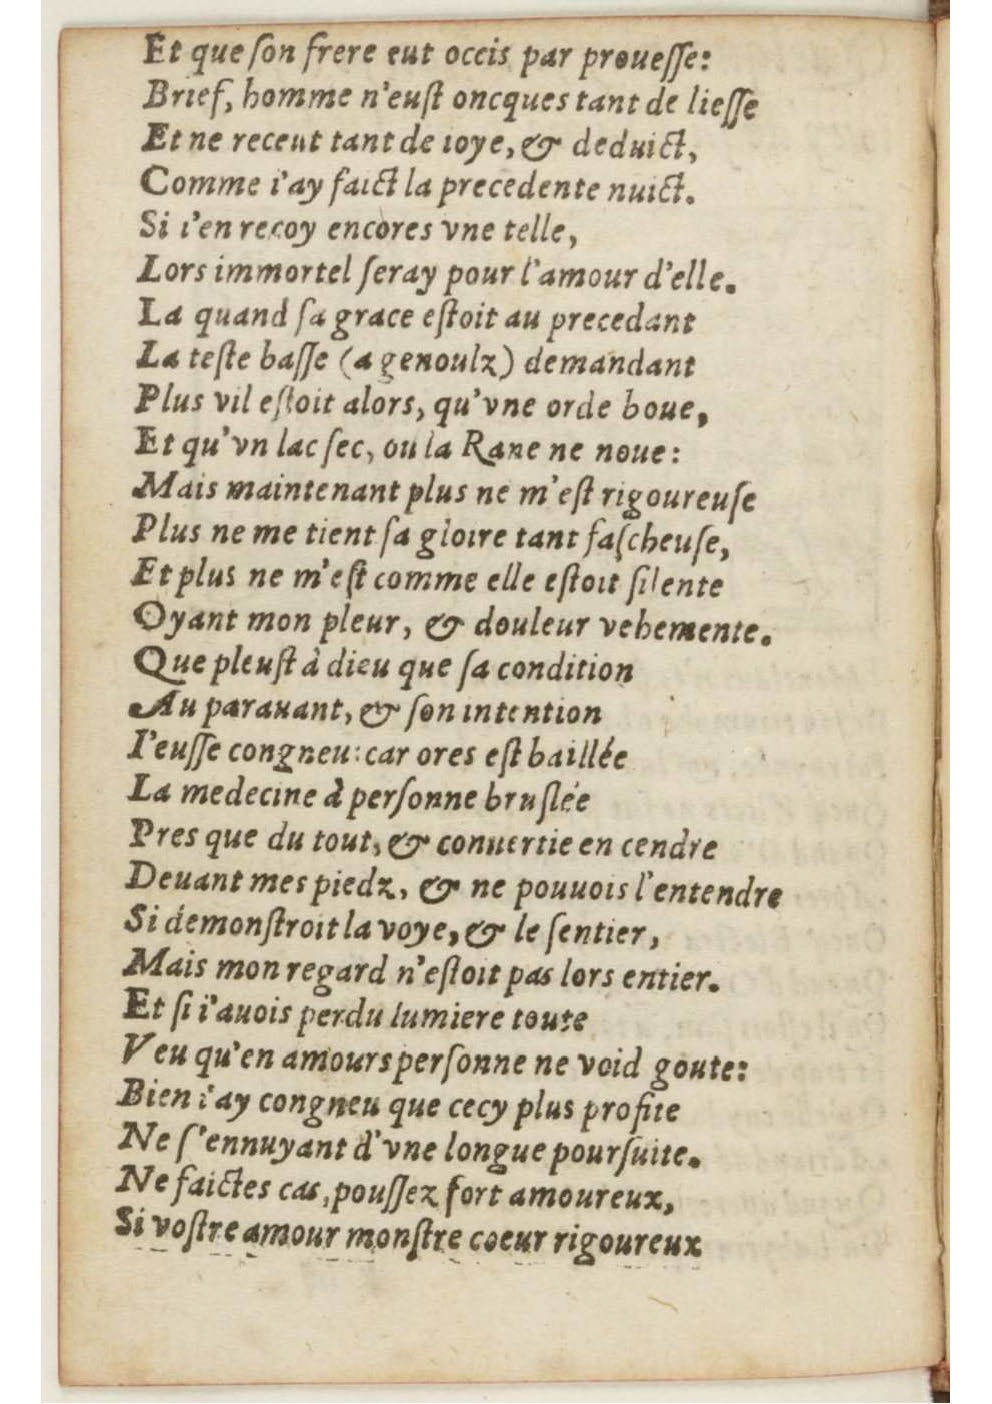 Et que ſon frere eut occis par proueſſe:
Brief, homme n'euſt oncques tant de lieſſe
Et ne receut tant de ioye, & deduict,
Comme i'ay faict la precedente nuict.
Si i'en reçoy encores vne telle,
Lors immortel ſeray pour l'amour d'elle.
La quand ſa grace eſtoit au precedant
La teſte baſſe (a genoulz) demandant
Plus vil eſtoit alors, qu'vne orde boue,
Et qu'vn lac ſec, ou la Rane ne noue:
Mais maintenant plus ne m'eſt rigoureuſe
Plus ne me tient ſa gloire tant faſcheuſe,
Et plus ne m'eſt comme elle eſtoit ſilente
Oyant mon pleur, & douleur vehemente.
Que pleuſt à dieu que ſa condition
Au parauant, & ſon intention
I'euſſe congneu: car ores eſt baillée
La medecine à perſonne bruſlée
Pres que du tout, & conuertie en cendre
Deuant mes piedz, & ne pouuois l'entendre
Si demonſtroit la voye, & le ſentier,
Mais mon regard n'eſtoit pas lors entier.
Et ſi i'auois perdu lumiere toute
Veu qu'en amours perſonne ne void goute:
Bien i'ay congneu que cecy plus profite
Ne ſ'ennuyant d'vne longue pourſuite.
Ne faictes cas, pouſſez fort amoureux,
Si voſtre amour monſtre coeur rigoureux